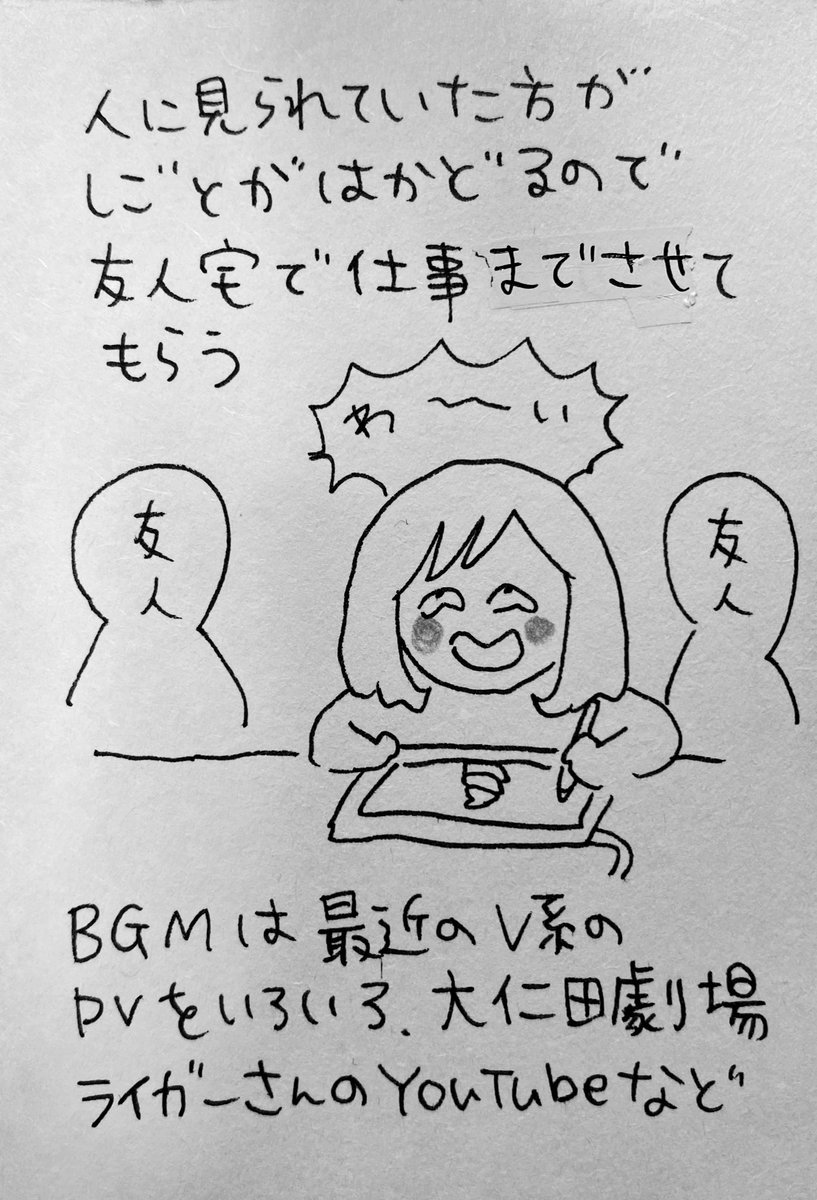 人に見られていた方が
しごとがはかどるので
友人宅で仕事までさせて
もらう
わ〜〜い
友人
友人
BGMは最近のV系の
PVをいろいろ、大仁田劇場
ライガーさんのYouTubeなど